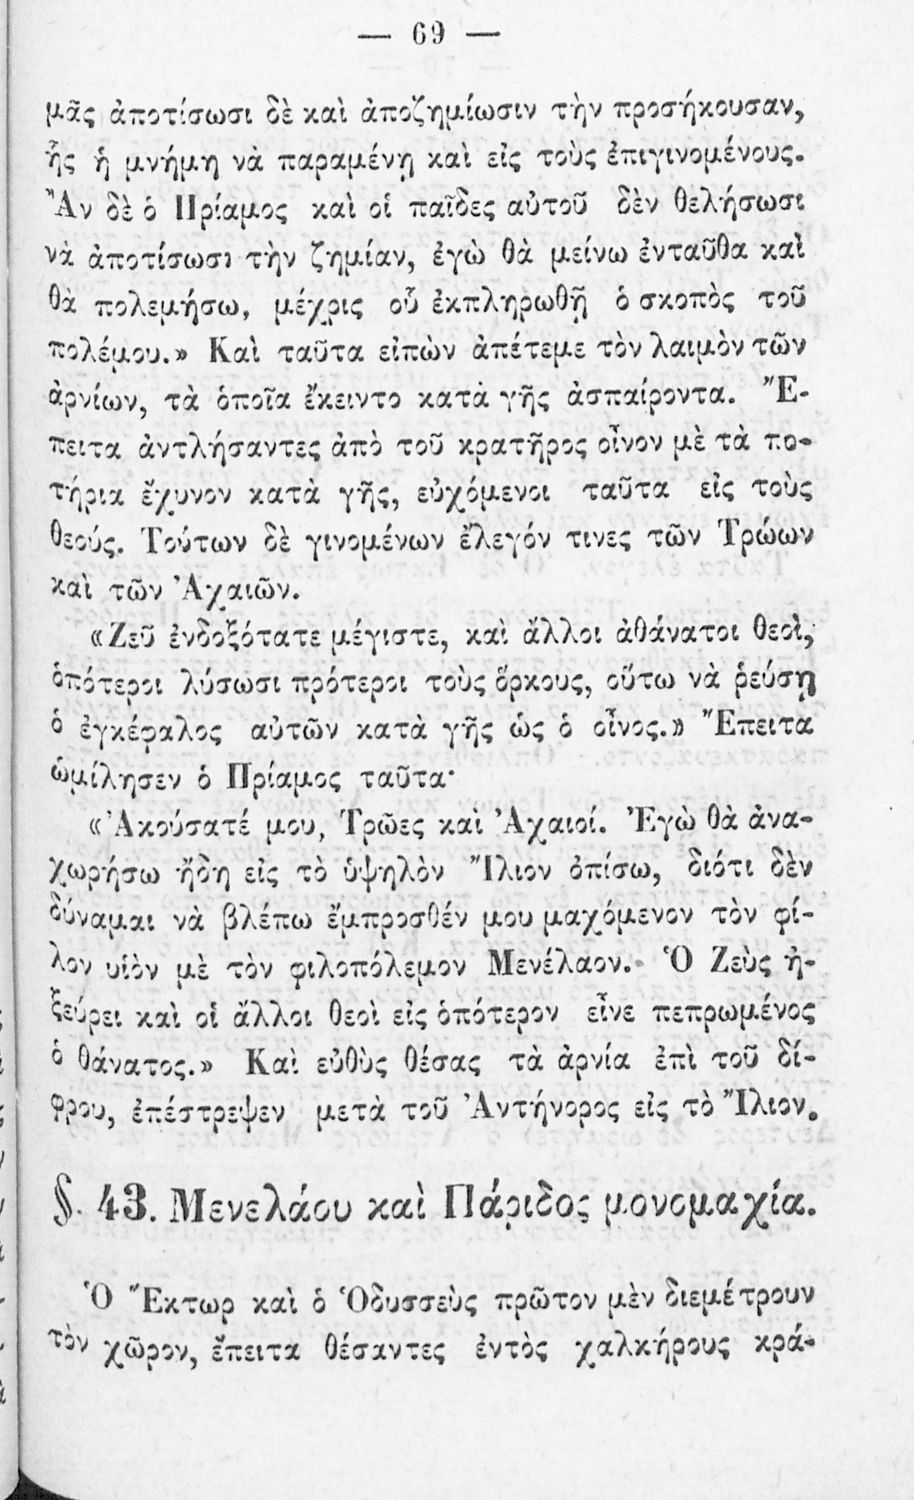 — 69 —
μᾶς ἀποτίσωσι δὲ καὶ ἀποζημίωσιν τὴν προσήκουσαν,
ἧς ἡ μνήμη νὰ παραμένῃ καὶ εἰς τοὺς ἐπιγινομένους.
Ἂν δὲ ὁ Πρίαμος καὶ οἱ παῖδες αὐτοῦ δὲν θελήσωσι
νὰ ἀποτίσωσι τὴν ζημίαν, ἐγὼ θὰ μείνω ἐνταῦθα καὶ
θὰ πολεμήσω, μέχρις οὗ ἐκπληρωθῇ ὁ σκοπὸς τοῦ
πολέμου.» Καὶ ταῦτα εἰπὼν ἀπέτεμε τὸν λαιμὸν τῶν
ἀρνίων, τὰ ὁποῖα ἔκειντο κατὰ γῆς ἀσπαίροντα. Ἔ-
πειτα ἀντλήσαντες ἀπὸ τοῦ κρατῆρος οἶνον μὲ τὰ πο-
τήρια ἔχυνον κατὰ γῆς, εὐχόμενοι ταῦτα εἰς τοὺς
θεούς. Τούτων δὲ γινομένων ἔλεγόν τινες τῶν Τρώων
καὶ τῶν Ἀχαιῶν.
«Ζεῦ ἐνδοξότατε μέγιστε, καὶ ἄλλοι ἀθάνατοι θεοὶ,
ὁπότεροι λύσωσι πρότεροι τοὺς ὅρκους, οὕτω νὰ ῥεύσῃ
ὁ ἐγκέφαλος αὐτῶν κατὰ γῆς ὡς ὁ οἶνος.» Ἔπειτα
ὡμίλησεν ὁ Πρίαμος ταῦτα·
«Ἀκούσατέ μου, Τρῶες καὶ Ἀχαιοί. Ἐγὼ θὰ ἀνα-
χωρήσω ἤδη εἰς τὸ ὑψηλὸν Ἴλιον ὀπίσω, διότι δὲν
δύναμαι νὰ βλέπω ἔμπροσθέν μου μαχόμενον τὸν φί-
λον υἱὸν μὲ τὸν φιλοπόλεμον Μενέλαον. Ὁ Ζεὺς ἠ-
ξεύρει καὶ οἱ ἄλλοι θεοὶ εἰς ὁπότερον εἶνε πεπρωμένος
ὁ θάνατος.» Καὶ εὐθὺς θέσας τὰ ἀρνία ἐπὶ τοῦ δί-
φρου, ἐπέστρεψεν μετὰ τοῦ Ἀντήνορος εἰς τὸ Ἴλιον.
§. 43. Μενελάου καὶ Πάριδος μονομαχία.
Ὁ Ἕκτωρ καὶ ὁ Ὀδυσσεὺς πρῶτον μὲν διεμέτρουν
τὸν χῶρον, ἔπειτα θέσαντες ἐντὸς χαλκήρους κρά-